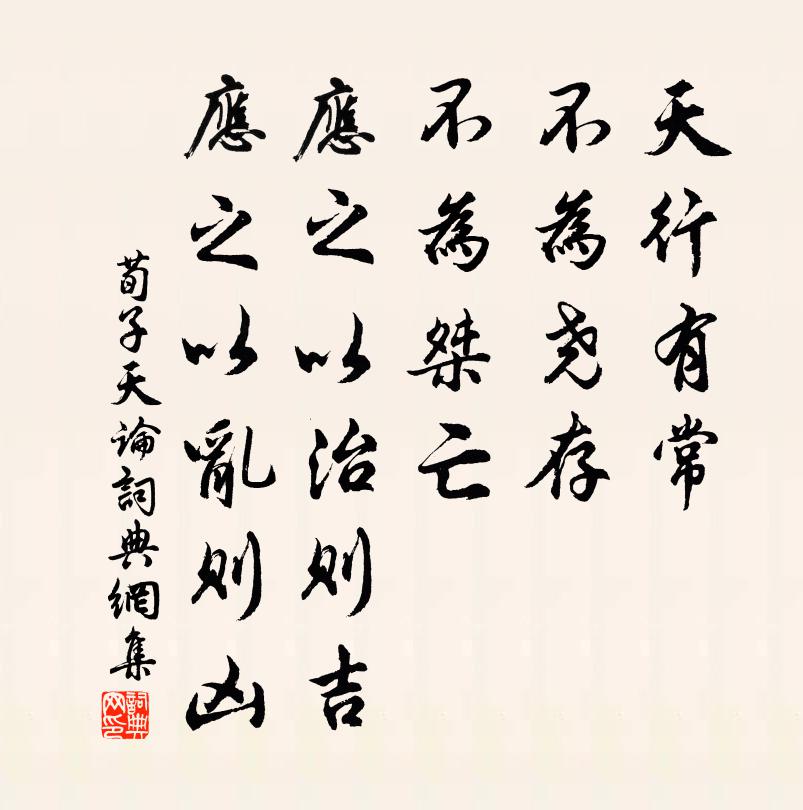 天行有常
不為尧存
不為桀亡
應之以治則吉
應之以亂則凶
荀子天論詞典網集
詞典网印